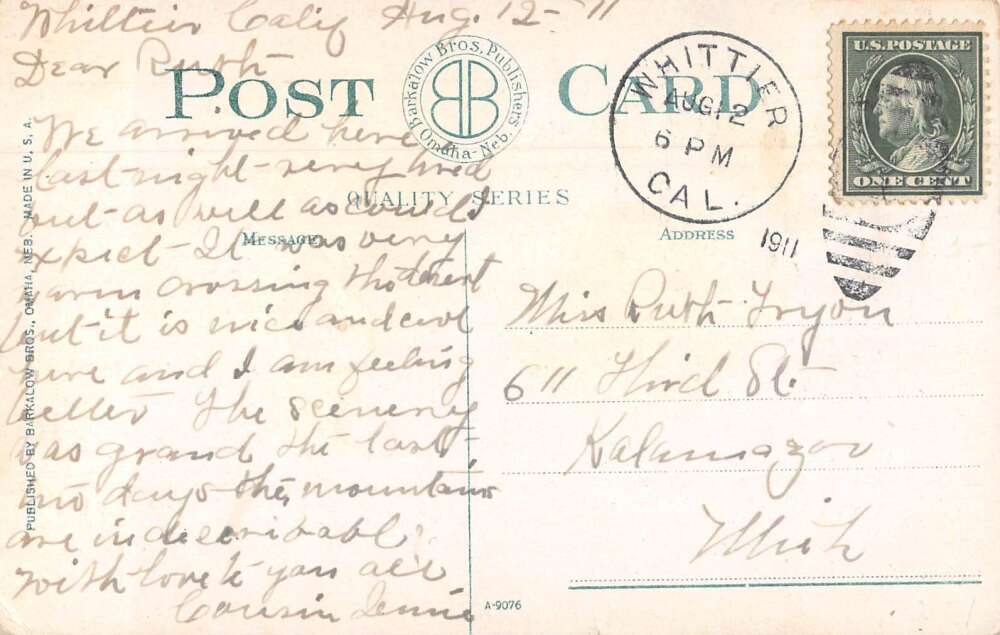 Whittier Calif Aug. 12-11
Dear Ruth
POST CARD
Barkalow Bros, Publishers
Omaha-Neb.
QUALITY SERIES
MESSAGE
ADDRESS
We arrived here
last night very tired
but as well as could
expect It was very
warm crossing the desert
but it is nice and cool
here and I am feeling
better The scenery
was grand the last
two days the mountains
are indescribable
With love to you all
Cousin Jennie
WHITTIER
AUG 12
6 PM
CAL.
1911
U.S. POSTAGE
ONE CENT
Miss Ruth Tryon
611 Third St.
Kalamazoo
Mich
PUBLISHED BY BARKALOW BROS., OMAHA, NEB. MADE IN U. S. A.
A-9076